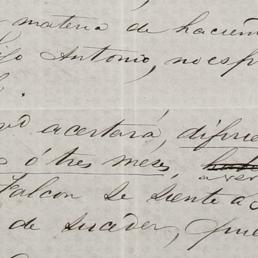 materia de hacien
Antonio, no es pr
acertará, difirie
ó tres meses,
a ver
Falcon se siente a
de suceder, que